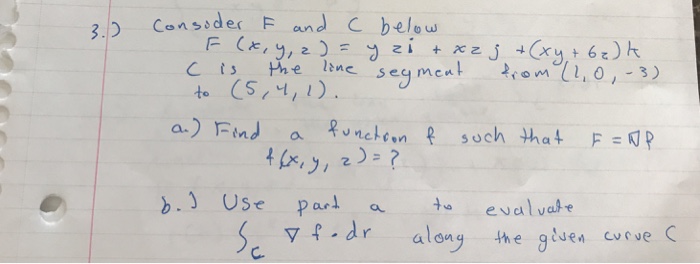 3.) Consider F and C below
F (x, y, z) = y z i + x z j + (xy + 6z) k
C is the line segment from (1, 0, -3)
to (5, 4, 1).
a.) Find a function f such that F = ∇f
f(x, y, z) = ?
b.) Use part a to evaluate
∫c ∇f · dr along the given curve C